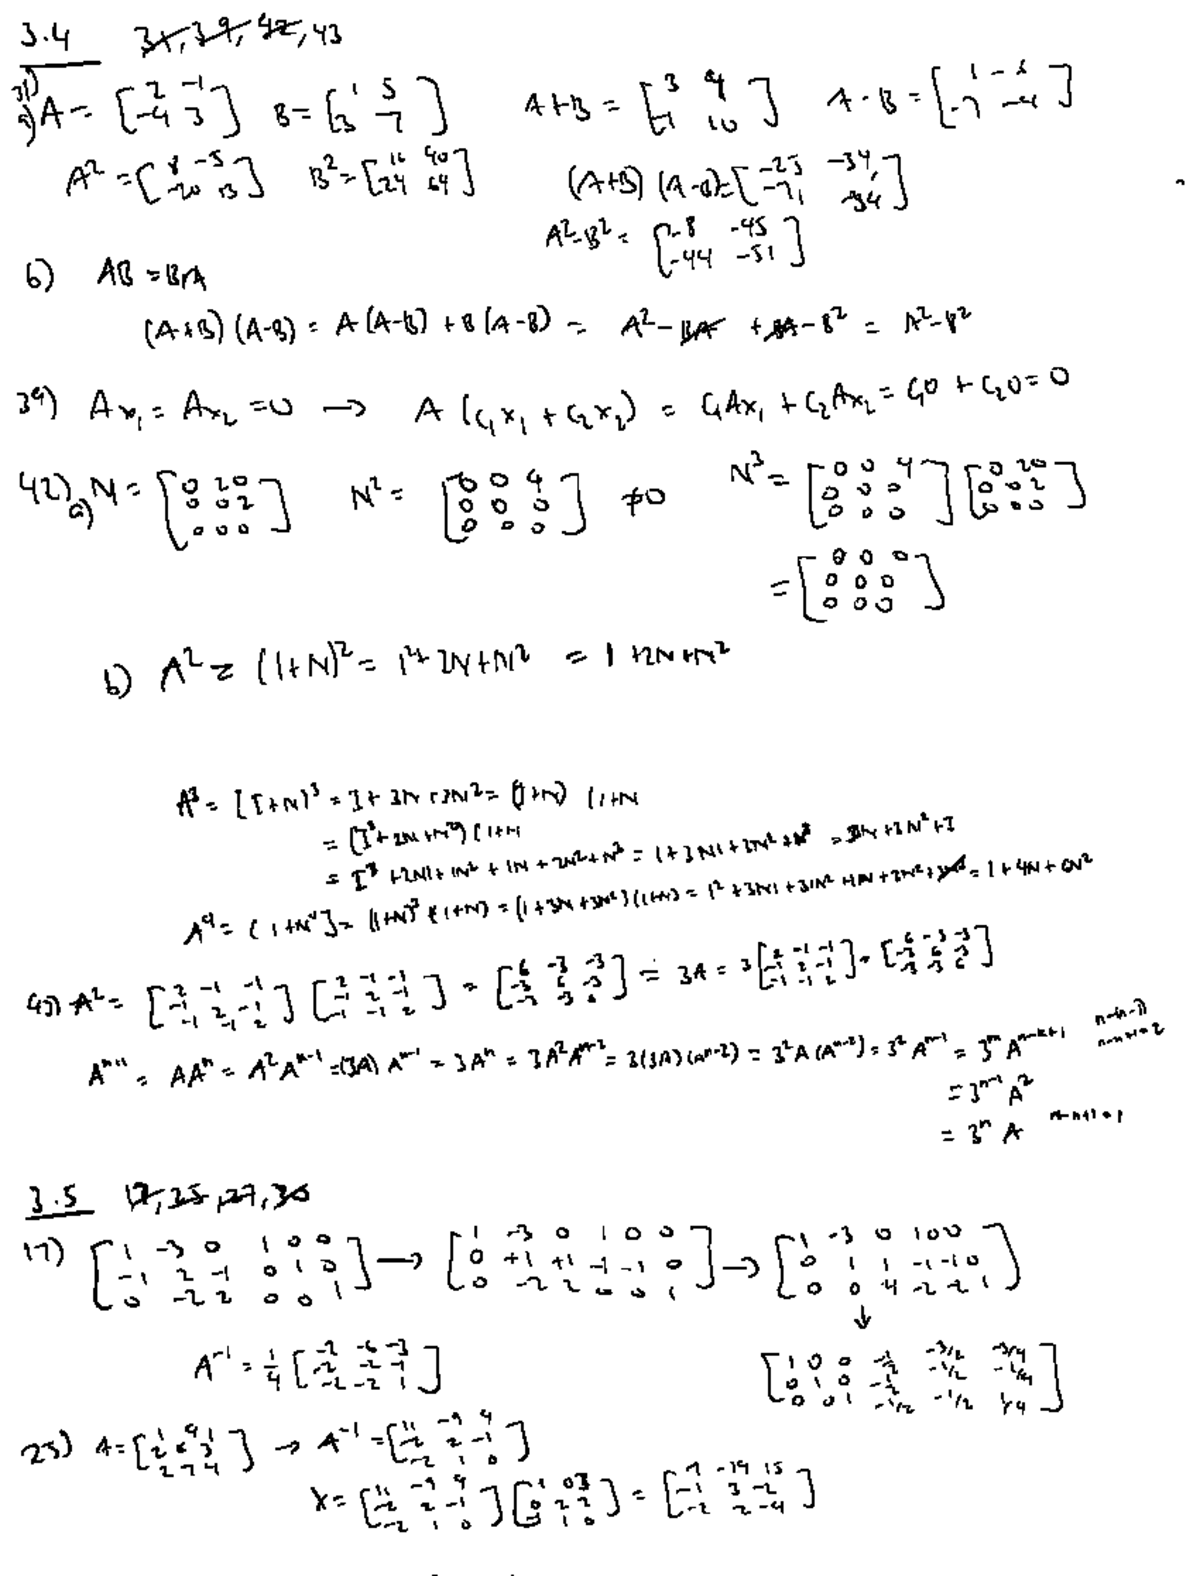 3.4 31, 39, 42, 43
31) a) A = [2 -1; -4 3] B = [1 5; 3 7] A+B = [3 4; -1 10] A-B = [1 -6; -7 -4]
A² = [8 -5; -20 13] B² = [16 40; 24 64] (A+B)(A-B) = [-25 -34; -71 -34]
A²-B² = [-8 -45; -44 -51]
b) AB = BA
(A+B)(A-B) = A(A-B) + B(A-B) = A² - BA + BA - B² = A²-B²
39) Ax₁ = Ax₂ = 0 → A(c₁x₁ + c₂x₂) = c₁Ax₁ + c₂Ax₂ = c₁0 + c₂0 = 0
42) a) N = [0 2 0; 0 0 2; 0 0 0] N² = [0 0 4; 0 0 0; 0 0 0] ≠ 0 N³ = [0 0 4; 0 0 0; 0 0 0] [0 2 0; 0 0 2; 0 0 0]
= [0 0 0; 0 0 0; 0 0 0]
b) A² = (I+N)² = I² + 2N + N² = I + 2N + N²
A³ = [I+N]³ = I + 3N + 3N² = (I+N) (I+N
= (I² + 2N + N²) (I+N
= I³ + 2NI + IN² + IN + 2N² + N³ = I + 3NI + 3N² + N³ = 3N + 3N² + I
A⁴ = (I+N⁴] = (I+N)³(I+N) = (I + 3N + 3N²)(I+N) = I² + 3NI + 3IN² + IN + 3N² + = I + 4N + 6N²
43) A² = [2 -1 -1; -1 2 -1; -1 -1 2] [2 -1 -1; -1 2 -1; -1 -1 2] = [6 -3 -3; -3 6 -3; -3 -3 6] = 3A = 3[2 -1 -1; -1 2 -1; -1 -1 2] = [6 -3 -3; -3 6 -3; -3 -3 6]
Aⁿ⁺¹ = AAⁿ = A²Aⁿ⁻¹ = (3A)Aⁿ⁻¹ = 3Aⁿ = 3A²Aⁿ⁻² = 3(3A)(Aⁿ⁻²) = 3²A(Aⁿ⁻²) = 3²Aⁿ⁻¹ = 3ⁿ Aⁿ⁻ᵏ⁺¹ n-(n-1)
= 3ⁿ⁻¹ A²
= 3ⁿ A n-n+1 = 1
3.5 17, 25, 27, 30
17) [1 -3 0 1 0 0; -1 2 -1 0 1 0; 0 -2 2 0 0 1] → [1 -3 0 1 0 0; 0 +1 +1 -1 -1 0; 0 -2 2 0 0 1] → [1 -3 0 1 0 0; 0 1 1 -1 -1 0; 0 0 4 -2 -2 1]
↓
A⁻¹ = 1/4 [-2 -6 -3; -2 -2 -1; -2 -2 1] [1 0 0 -1/2 -3/2 -3/4; 0 1 0 -1/2 -1/2 -1/4; 0 0 1 -1/2 -1/2 1/4]
25) A = [1 4 1; 2 8 3; 2 7 4] → A⁻¹ = [11 -9 4; -2 2 -1; -2 1 0]
X = [11 -9 4; -2 2 -1; -2 1 0] [1 0 3; 0 2 2; 1 0] = [7 -14 15; -1 3 -2; -2 2 -4]